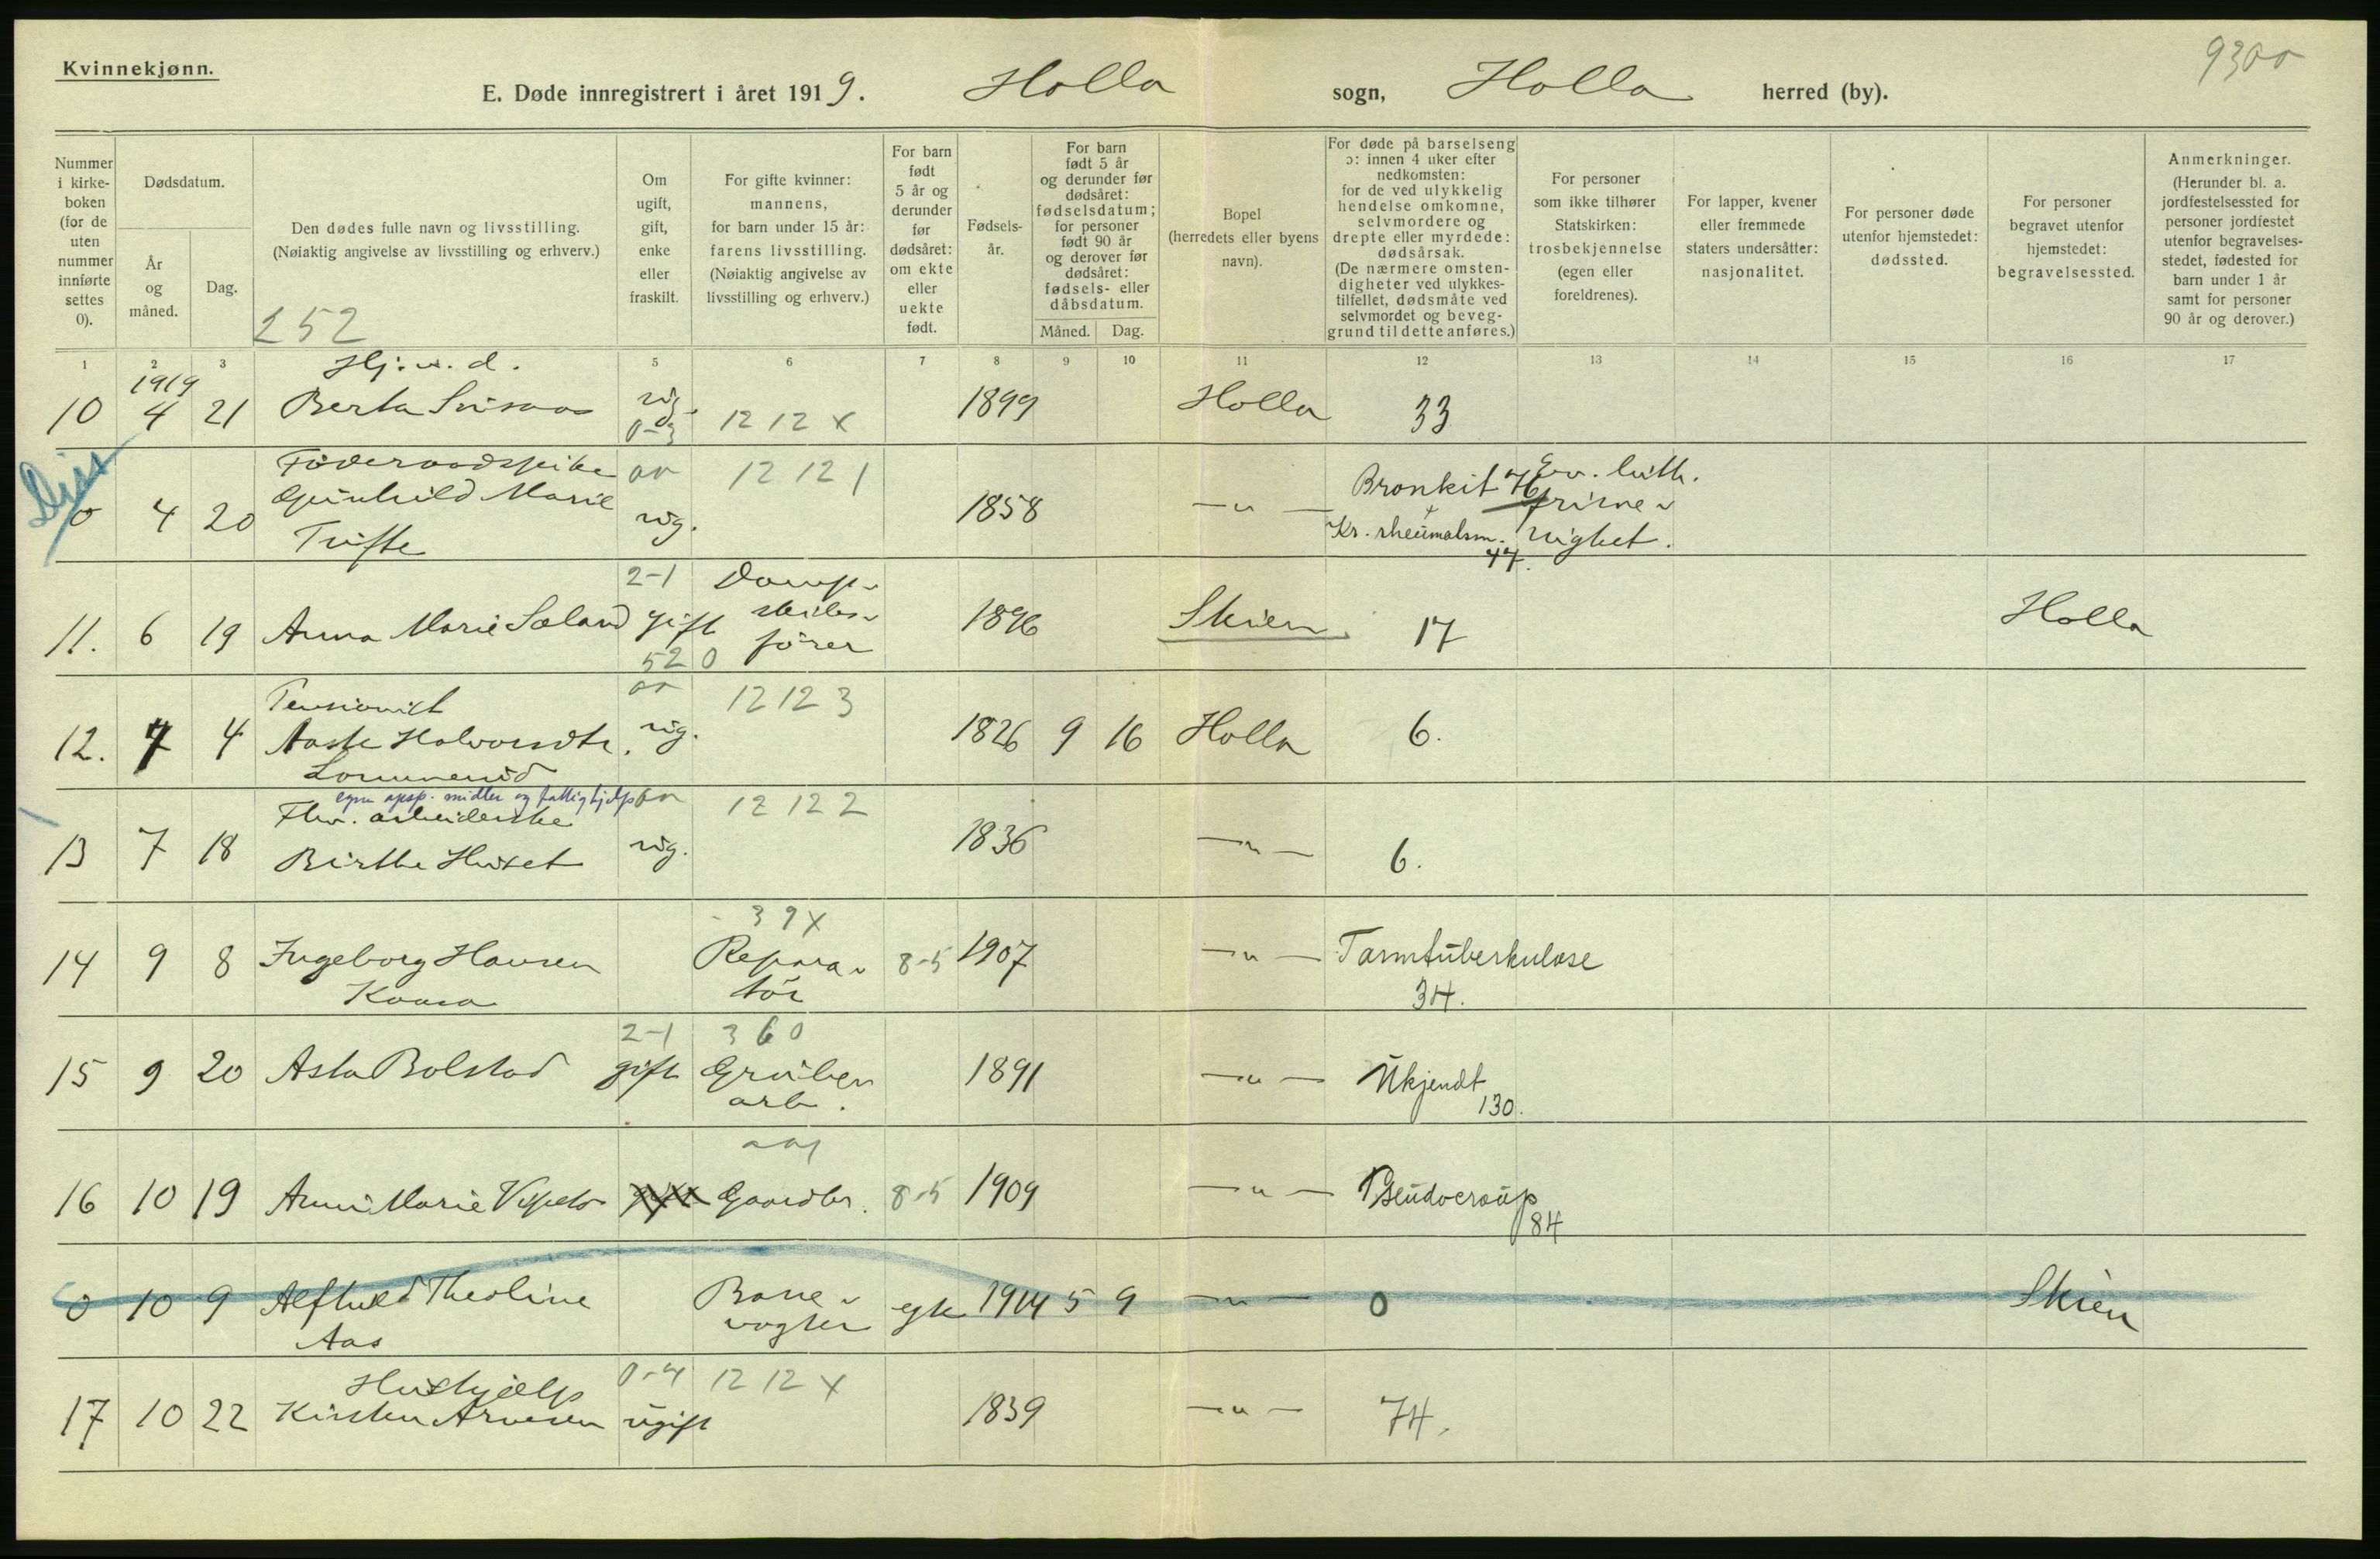 Kvinnekjønn.
9300
E. Døde innregistrert i året 1919. Holla sogn, Holla herred (by).
Nummer i kirke- boken (for de uten nummer innførte settes 0).
Dødsdatum.
År og måned.
Dag.
Den dødes fulle navn og livsstilling.
(Nøiaktig angivelse av livsstilling og erhverv.)
252
Om ugift, gift, enke eller fraskilt.
For gifte kvinner: mannens, for barn under 15 år: farens livsstilling. (Nøiaktig angivelse av livsstilling og erhverv.)
For barn født 5 år og derunder før dødsåret: om ekte eller uekte født.
Fødsels- år.
For barn født 5 år og derunder før dødsåret: fødselsdatum; for personer født 90 år og derover før dødsåret: fødsels- eller dåbsdatum.
Måned. Dag.
Bopel (herredets eller byens navn).
For døde på barselseng ɔ: innen 4 uker efter nedkomsten: for de ved ulykkelig hendelse omkomne, selvmordere og drepte eller myrdede: dødsårsak. (De nærmere omsten- digheter ved ulykkes- tilfellet, dødsmåte ved selvmordet og beveg- grund til dette anføres.)
For personer som ikke tilhører Statskirken: trosbekjennelse (egen eller foreldrenes).
For lapper, kvener eller fremmede staters undersåtter: nasjonalitet.
For personer døde utenfor hjemstedet: dødssted.
For personer begravet utenfor hjemstedet: begravelsessted.
Anmerkninger. (Herunder bl. a. jordfestelsessted for personer jordfestet utenfor begravelses- stedet, fødested for barn under 1 år samt for personer 90 år og derover.)
1 2 3 5 6 7 8 9 10 11 12 13 14 15 16 17
1919 Hj. v. d.
10 4 21 Berta ug. 0-3 12 12 x 1899 Holla 33
Diss
0 4 20 Föderaadspike
Gunhild Marie
Tufte
ug. 12 12 1 1858 —"— Bronkit 76
+
Kr. rheumatism. 47.
Ev. luth.
frime-
nighet.
11. 6 19 Anna Marie Sæland 2-1 gift 520 Damp-
skibs-
förer
1896 Skien 17 Holla
12. 7 4 Pensionist
Aaste Halvorsdtr.
ug. 12 12 3 1826 9 16 Holla 6.
egne opsp. midler og fattighjelp
13 7 18 Fhv. arbeiderske
Birthe Huset
ug. 12 12 2 1836 —"— 6.
14 9 8 Ingeborg Hansen
Kaasa
39x
Repara-
tör
8-5 1907 —"— Tarmtuberkulose
34.
15 9 20 Asta Bolstad 2-1 gift 360
Gruben
arb.
1891 —"— Ukjendt
130.
16 10 19 Anne Marie gift Gaardbr. 8-5 1909 —"— Pseudocroup
84
0 10 9 Alfhild Theoline
Aas
Bane-
vogter
egte 1914 5 9 —"— 0 Skien
17 10 22 Hushjælp
Kirsten Arnesen
0-4 ugift 12 12 x 1839 —"— 74.